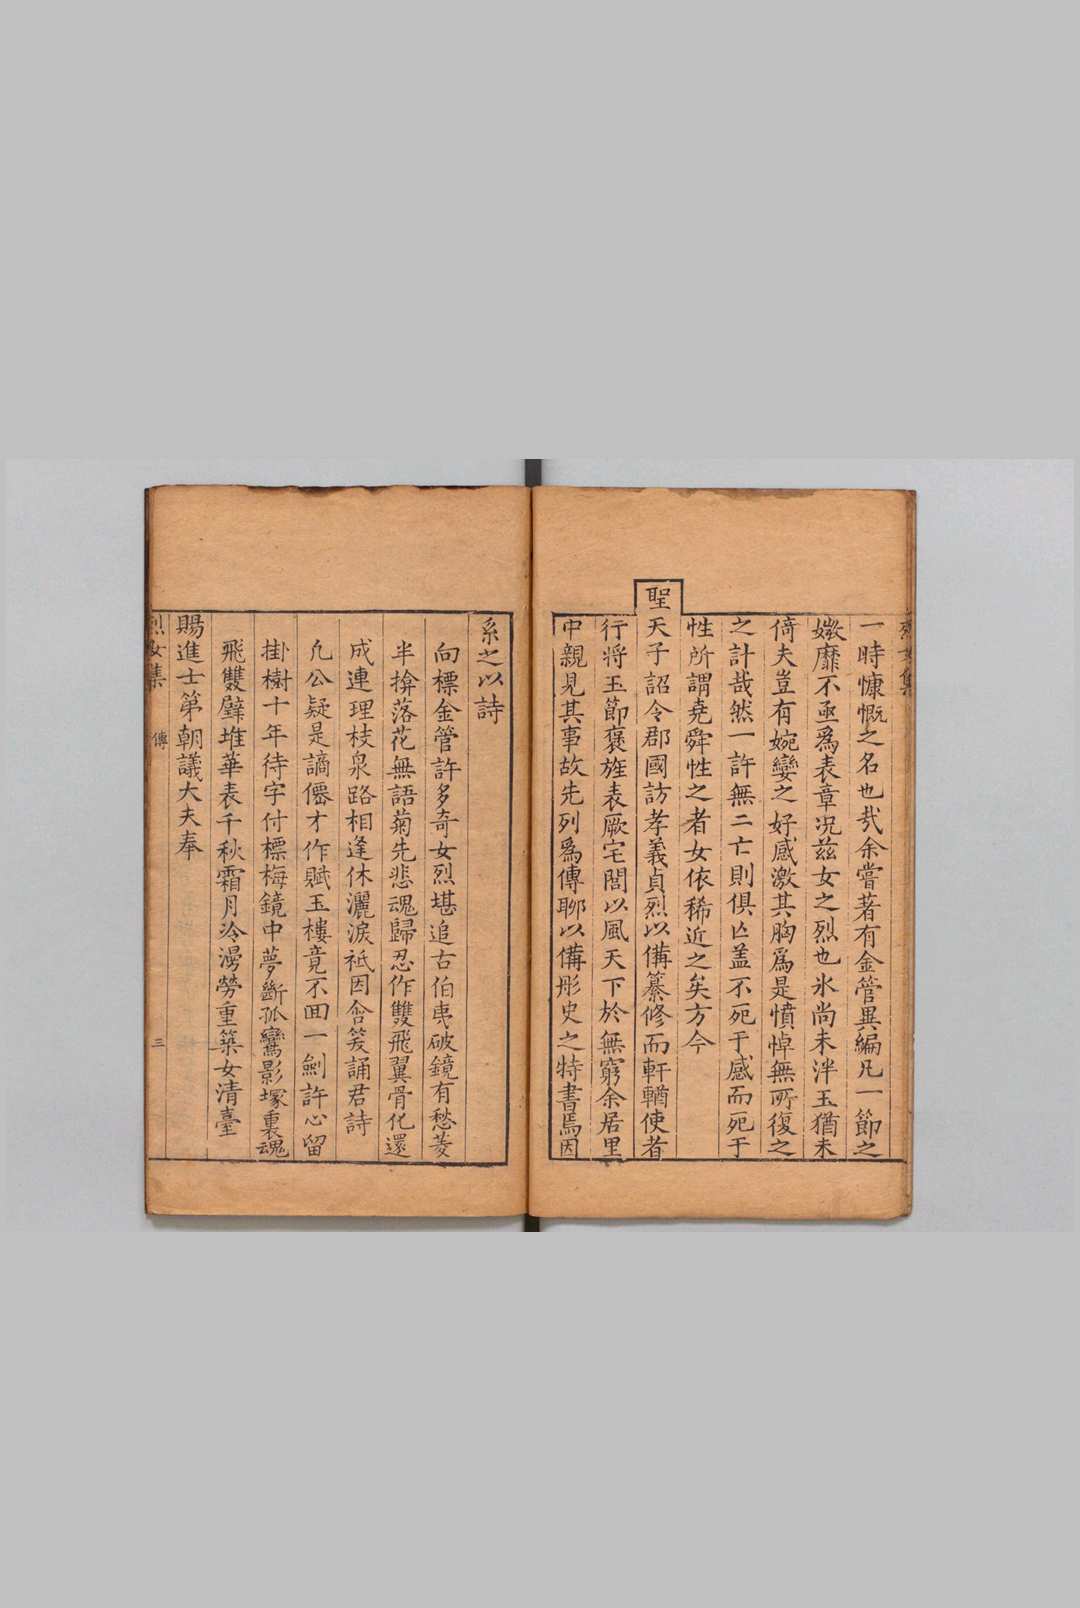 一時慷慨之名也㦲余嘗著有金管異編凡一節之
媺靡不亟爲表章况兹女之烈也氷尚未泮玉猶未
倚夫豈有婉孌之好感激其胸爲是憤悼無所復之
之計哉然一許無二亡則俱亾盖不死于感而死于
性所謂堯舜性之者女依稀近之矣方今
聖天子詔令郡國訪孝義貞烈以備纂修而軒輶使者
行將玉節褒旌表厥宅閭以風天下於無窮余居里
中親見其事故先列爲傳聊以備彤史之特書焉因
系之以詩
向標金管許多奇女烈堪追古伯夷破鏡有愁菱
半揜落花無語菊先悲魂歸忍作雙飛翼骨化還
成連理枝泉路相逢休灑淚祗因含笑誦君詩
凢公疑是謫僊才作賦玉樓竟不囬一劍許心留
掛樹十年待字付標梅鏡中夢斷孤鸞影塚裏魂
飛雙璧堆華表千秋霜月冷漫勞重築女清臺
賜進士第朝議大夫奉
烈女集 傳 三